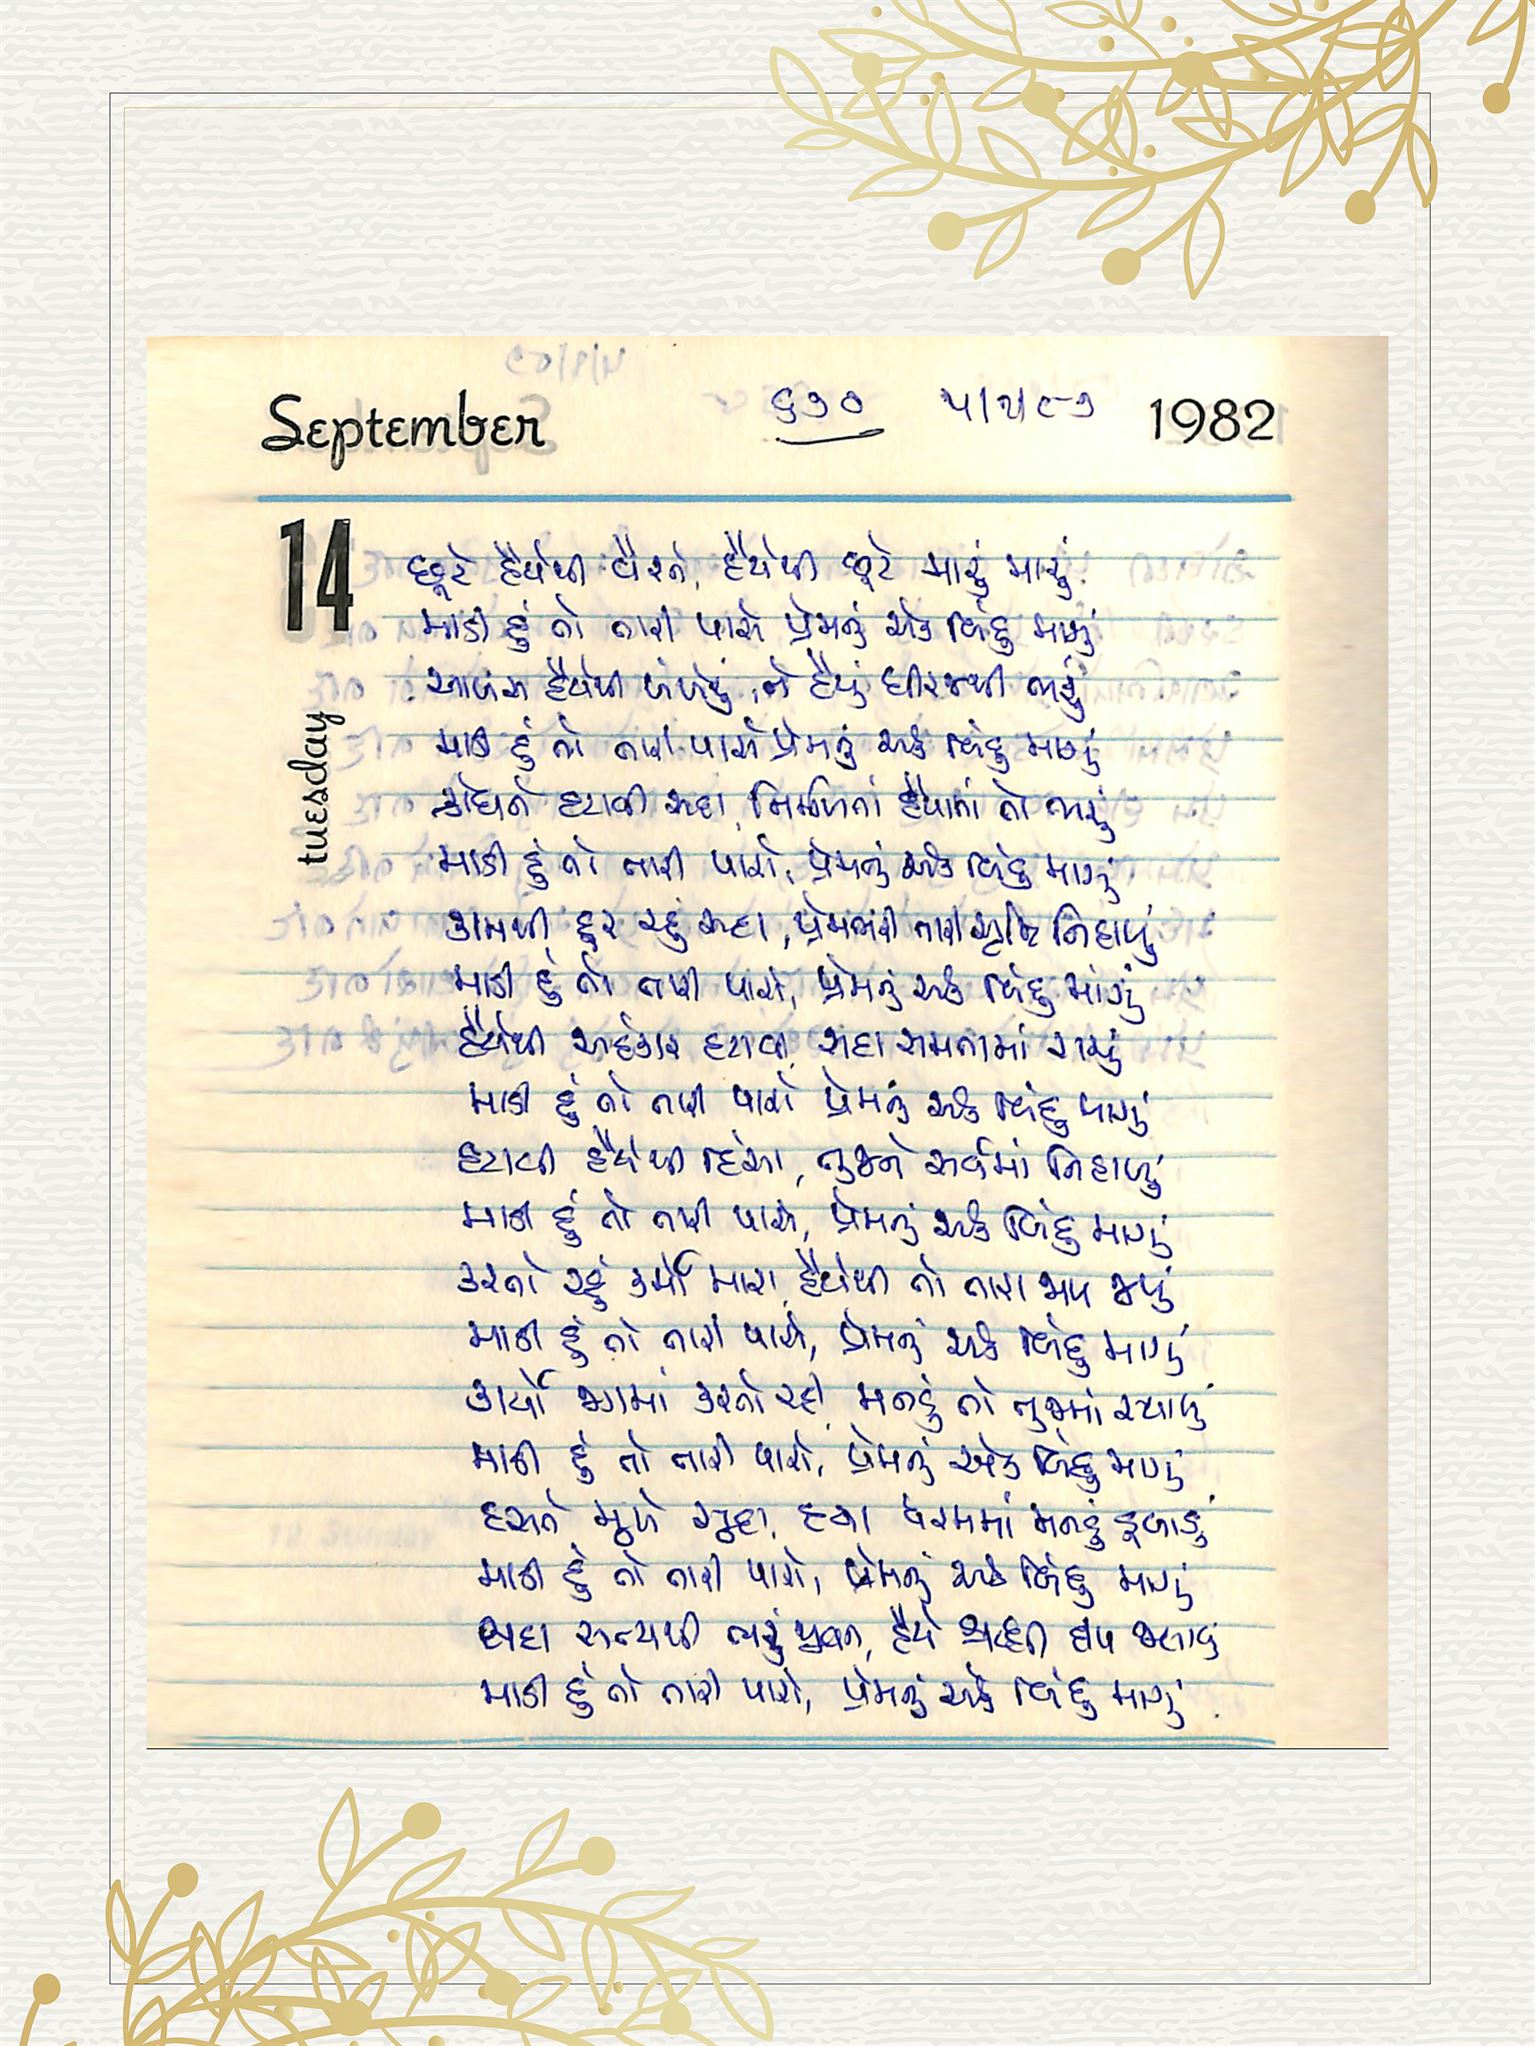 September ૬૭૦ ૫/૧/૮૭ 1982
14
tuesday
છૂટે હૈયેથી વૈરને, હૈયેથી છૂટે મારું મારું
માડી હું તો તારી પાસે પ્રેમનું એક બિંદુ માગું
આળસ હૈયેથી ખંખેરું, જે હૈયું ધીરજથી ભરું
માડી હું તો તારી પાસે પ્રેમનું એક બિંદુ માગું
ક્રોધને હટાવી સદા, નિર્મળતા હૈયામાં તો ભરું
માડી હું તો તારી પાસે, પ્રેમનું એક બિંદુ માગું
કામથી દૂર રહું સદા, પ્રેમભરી તારી સૃષ્ટિ નિહાળું
માડી હું તો તારી પાસે, પ્રેમનું એક બિંદુ માંગું
હૈયેથી અહંકાર હટાવી, સદા સમતામાં રાચું
માડી હું તો તારી પાસે પ્રેમનું એક બિંદુ માગું
હટાવી હૈયેથી હિંસા, તુજને સર્વમાં નિહાળું
માડી હું તો તારી પાસે, પ્રેમનું એક બિંદુ માગું
કરતો રહું કર્મો મારા, હૈયેથી તો તારા જાપ જપું
માડી હું તો તારી પાસે, પ્રેમનું એક બિંદુ માગું
કાર્યો જગમાં કરતો રહી, મનડું તો તુજમાં સ્થાપું
માડી હું તો તારી પાસે, પ્રેમનું એક બિંદુ માગું
હસતે મુખે સદા, દયા ધરમમાં મનડું ડુબાડું
માડી હું તો તારી પાસે, પ્રેમનું એક બિંદુ માગું
સદા સત્યથી ભરું જીવન, હૈયે ભક્તિ દીપ જલાવું
માડી હું તો તારી પાસે, પ્રેમનું એક બિંદુ માગું.